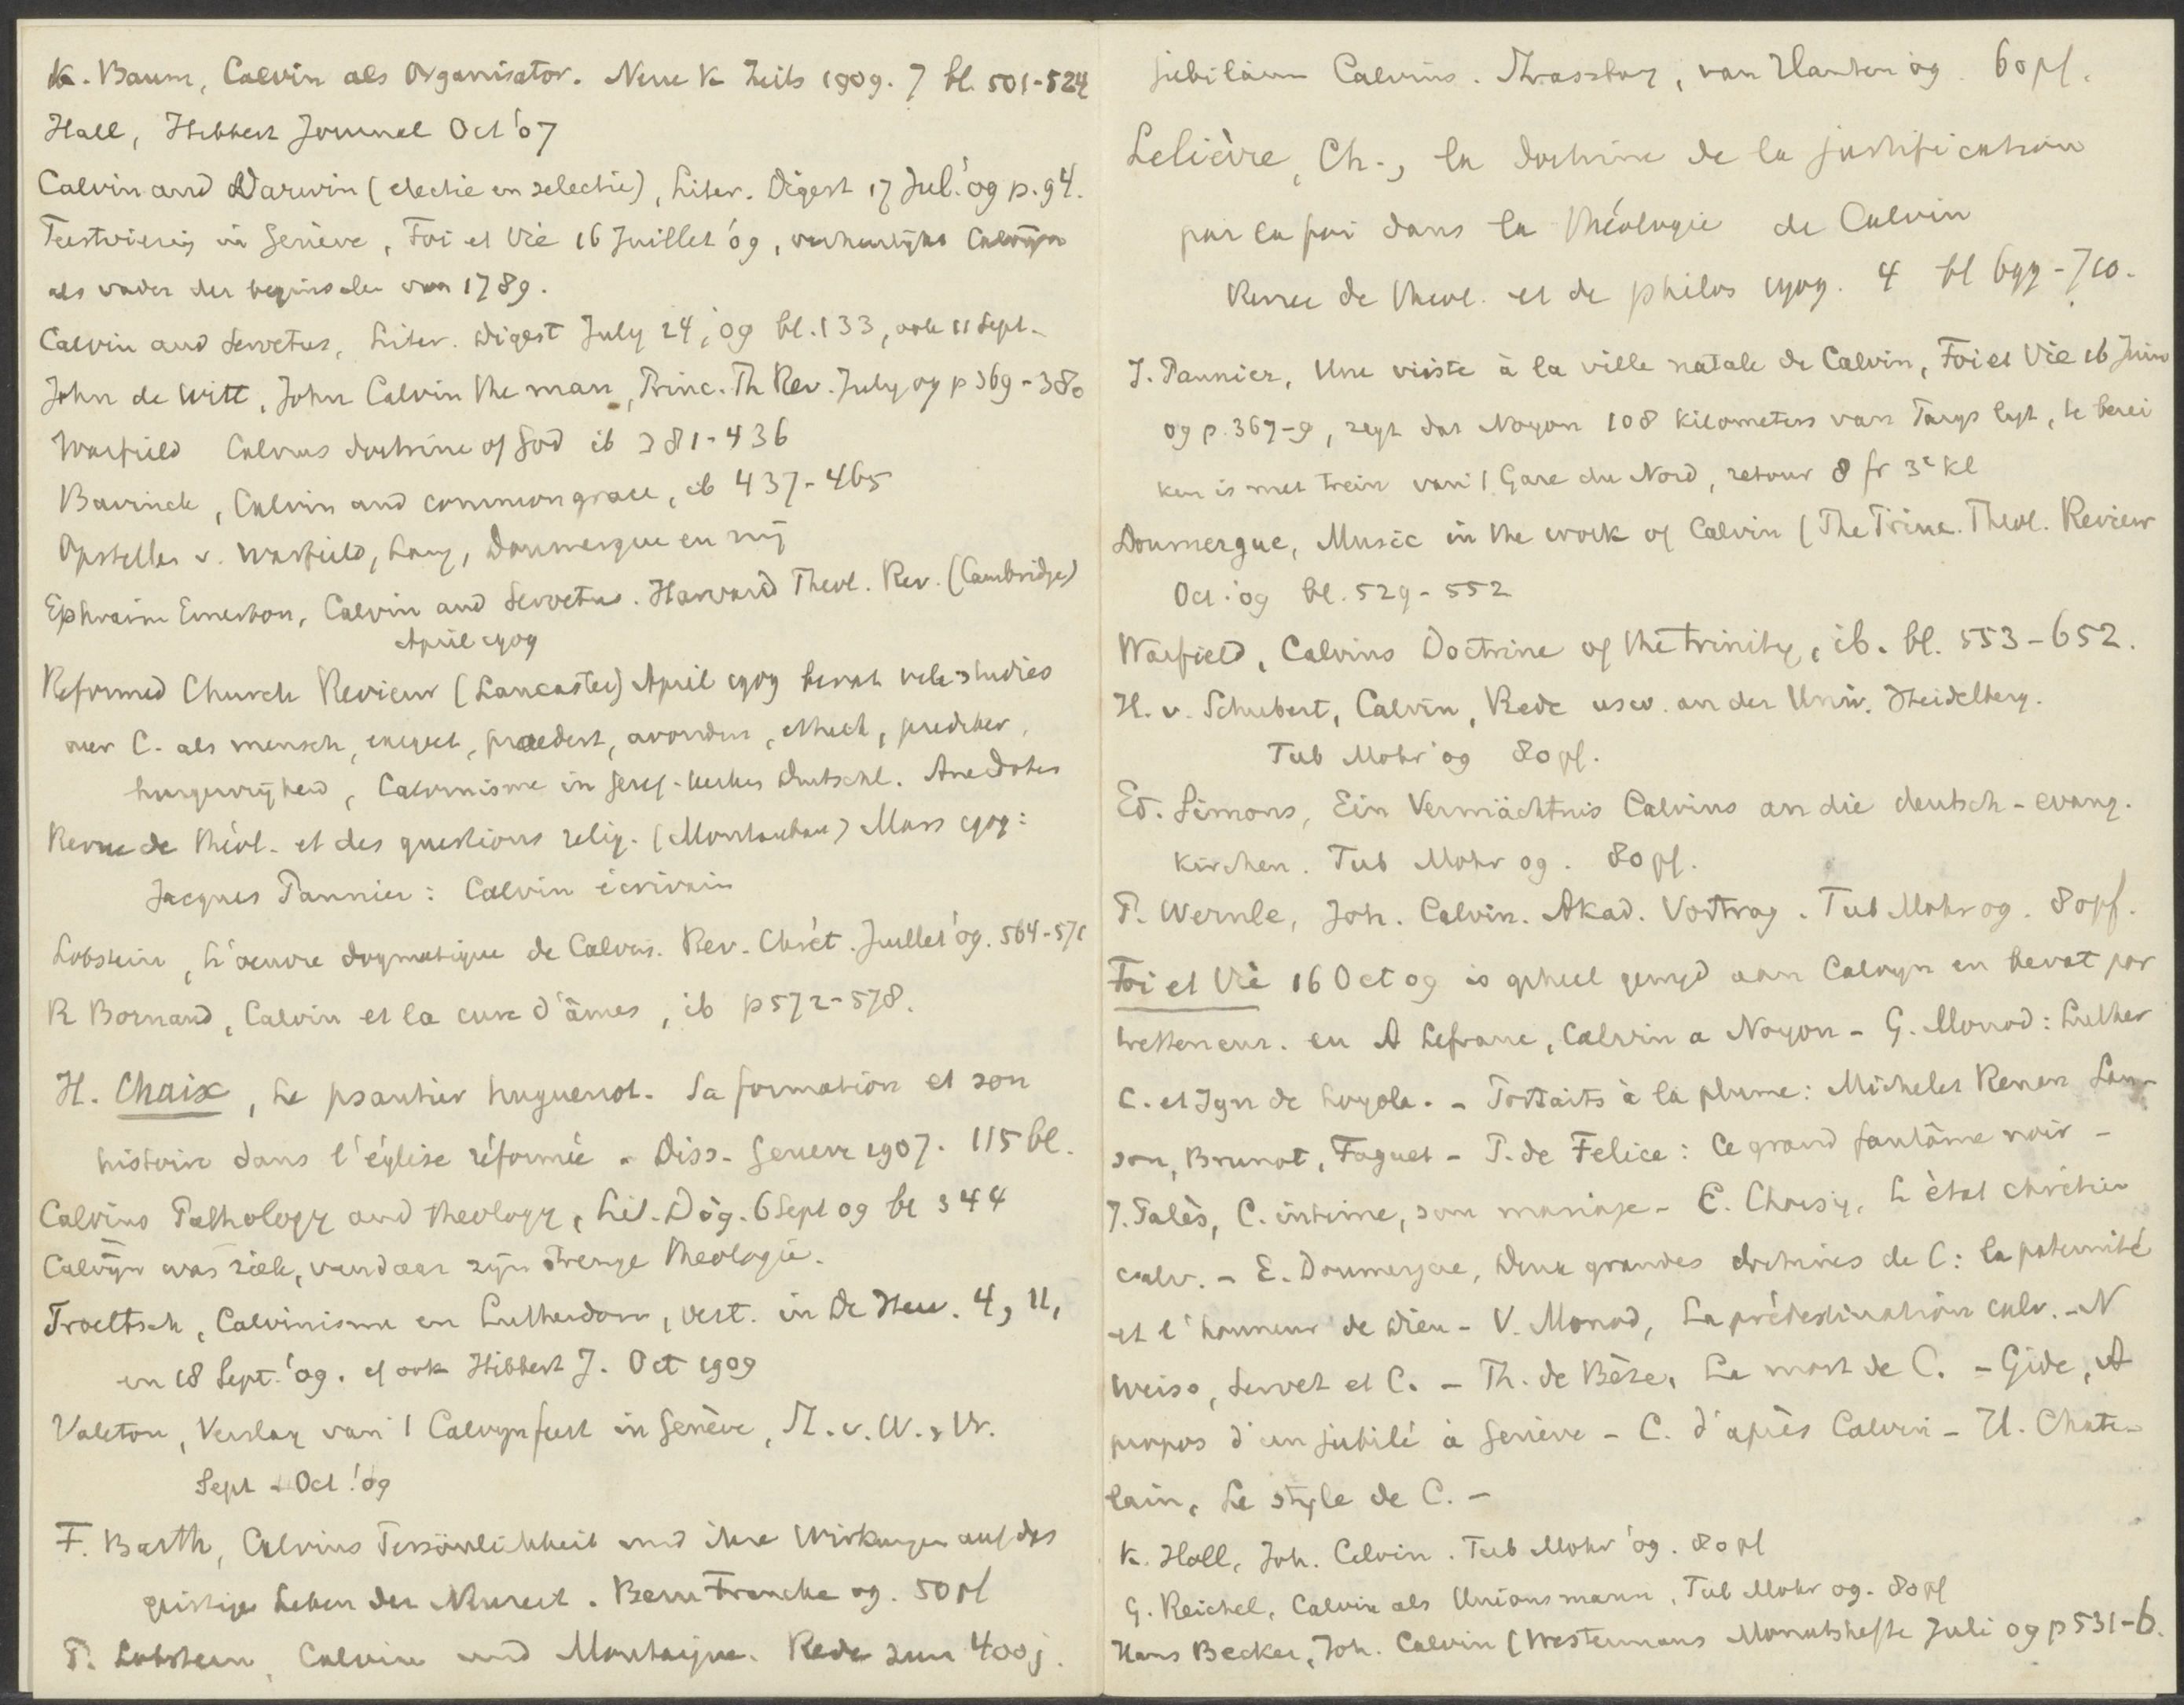 K. Baum, Calvin als Organisator. Neue K Zeits 1909. 7 bl. 501-524
Hall, Hibbert Journal Oct '07
Calvin and Darwin (electie en selectie), Liter. Digest 17 Jul. '09 p. 94.
Feestviering in Genève, Foi et Vie 16 Juillet '09, verheerlijkt Calvijn
als vader der beginselen van 1789.
Calvin and Servetus, Liter. Digest July 24, '09 bl. 133, ook 11 Sept.
John de Witt, John Calvin the man, Princ. Th Rev. July 09 p 369-380
Warfield Calvins doctrine of God ib 381-436
Bavinck, Calvin and common grace, ib 437-465
Opstellen v. Warfield, Lang, Doumergue en mij
Ephraim Emerton, Calvin and Servetus. Harvard Theol. Rev. (Cambridge)
April 1909
Reformed Church Review (Lancaster) April 1909 bevat vele studies
over C. als mensch, exegeet, praedest, avondm, ethiek, prediker,
burgervrijheid, Calvinisme in Geref. kerken Duitschl. Anecdotes
Revue de théol. et des questions relig. (Montauban) Mars 1909:
Jacques Pannier: Calvin écrivain
Lobstein, L'oeuvre dogmatique de Calvin. Rev. Chrét. Juillet '09. 564-571
R Bornand, Calvin et la cure d'âmes, ib p 572-578.
H. Chaix, Le psautier huguenot. Sa formation et son
histoire dans l'église réformée. Diss. Geneve 1907. 115 bl.
Calvins Pathology and theology, Lit. Dig. 6 Sept 09 bl 344
Calvijn was ziek, vandaar zijn strenge theologie.
Troeltsch, Calvinisme en Lutherdom, vert. in De Her. 4, 11,
en 18 Sept. '09. cf ook Hibbert J. Oct 1909
Valeton, Verslag van 't Calvynfeest in Genève, St. v. W. & Vr.
Sept - Oct '09
F. Barth, Calvins Persönlichkeit und ihre Wirkungen auf das
geistige Leben der Neuzeit. Bern Francke 09. 50 pf
P. Lobstein, Calvin und Montaigne. Rede zum 400j.
jubiläum Calvins. Strassburg, van Hauten 09. 60 pf.
Lelièvre, Ch., la doctrine de la justification
par la foi dans la théologie de Calvin
Revue de theol. et de philos 1909. 4 bl 699-710.
J. Pannier, Une visite à la ville natale de Calvin, Foi et Vie 16 Juin
09 p. 367-9, zegt dat Noyon 108 kilometers van Parys ligt, te berei
ken is met trein van 't Gare du Nord, retour 8 fr 3e kl
Doumergue, Music in the work of Calvin (The Princ. Theol. Review
Oct. '09 bl. 529-552
Warfield, Calvins Doctrine of the trinity, ib. bl. 553-652.
H. v. Schubert, Calvin, Rede usw. an der Univ. Heidelberg.
Tub Mohr '09 80 pf.
Ed. Simons, Ein Vermächtnis Calvins an die deutsch-evang.
Kirchen. Tub Mohr 09. 80 pf.
P. Wernle, Joh. Calvin. Akad. Vortrag. Tub Mohr 09. 80 pf.
Foi et Vie 16 Oct 09 is geheel gewyd aan Calvyn en bevat por
tretten enz. en A Lefranc, Calvin a Noyon - G. Monod: Luther
C. et Ign de Loyola. - Portraits à la plume: Michelet Renan Lan-
son, Brunot, Faguet - P. de Felice: Ce grand fantôme noir -
J. Palès, C. intime, son mariage - E. Choisy, L'état chrétien
calv. - E. Doumergue, Deux grandes doctrines de C: la paternité
et l'honneur de Dieu - V. Monod, La prédestination calv. - N
Weiss, Servet et C. - Th. de Bèze, La mort de C. - Gide, A
propos d'un jubilé à Genève - C. d'après Calvin - U. Chate-
lain, Le style de C. -
K. Holl, Joh. Calvin. Tub Mohr '09. 80 pf
G. Reichel, Calvin als Unionsmann, Tub Mohr 09. 80 pf
Hans Becker, Joh. Calvin (Westermans Monatshefte Juli 09 p 531-6.